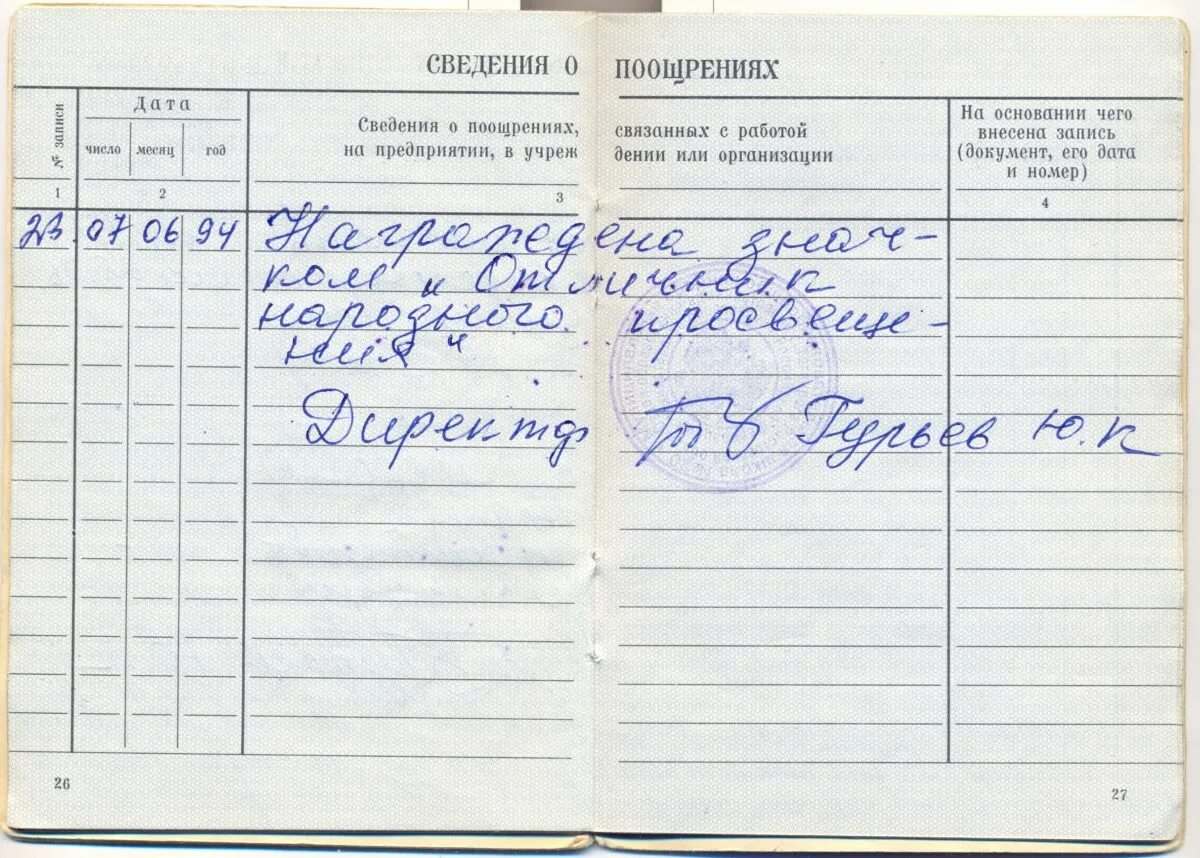 СВЕДЕНИЯ О ПООЩРЕНИЯХ
№ записи
Дата
число месяц год
Сведения о поощрениях, связанных с работой
на предприятии, в учреждении или организации
На основании чего
внесена запись
(документ, его дата
и номер)
1 2 3 4
23. 07 06 94 Награждена знач-
ком „Отличник
народного просвеще-
ния“
Директор Гурьев Ю.К
26
27